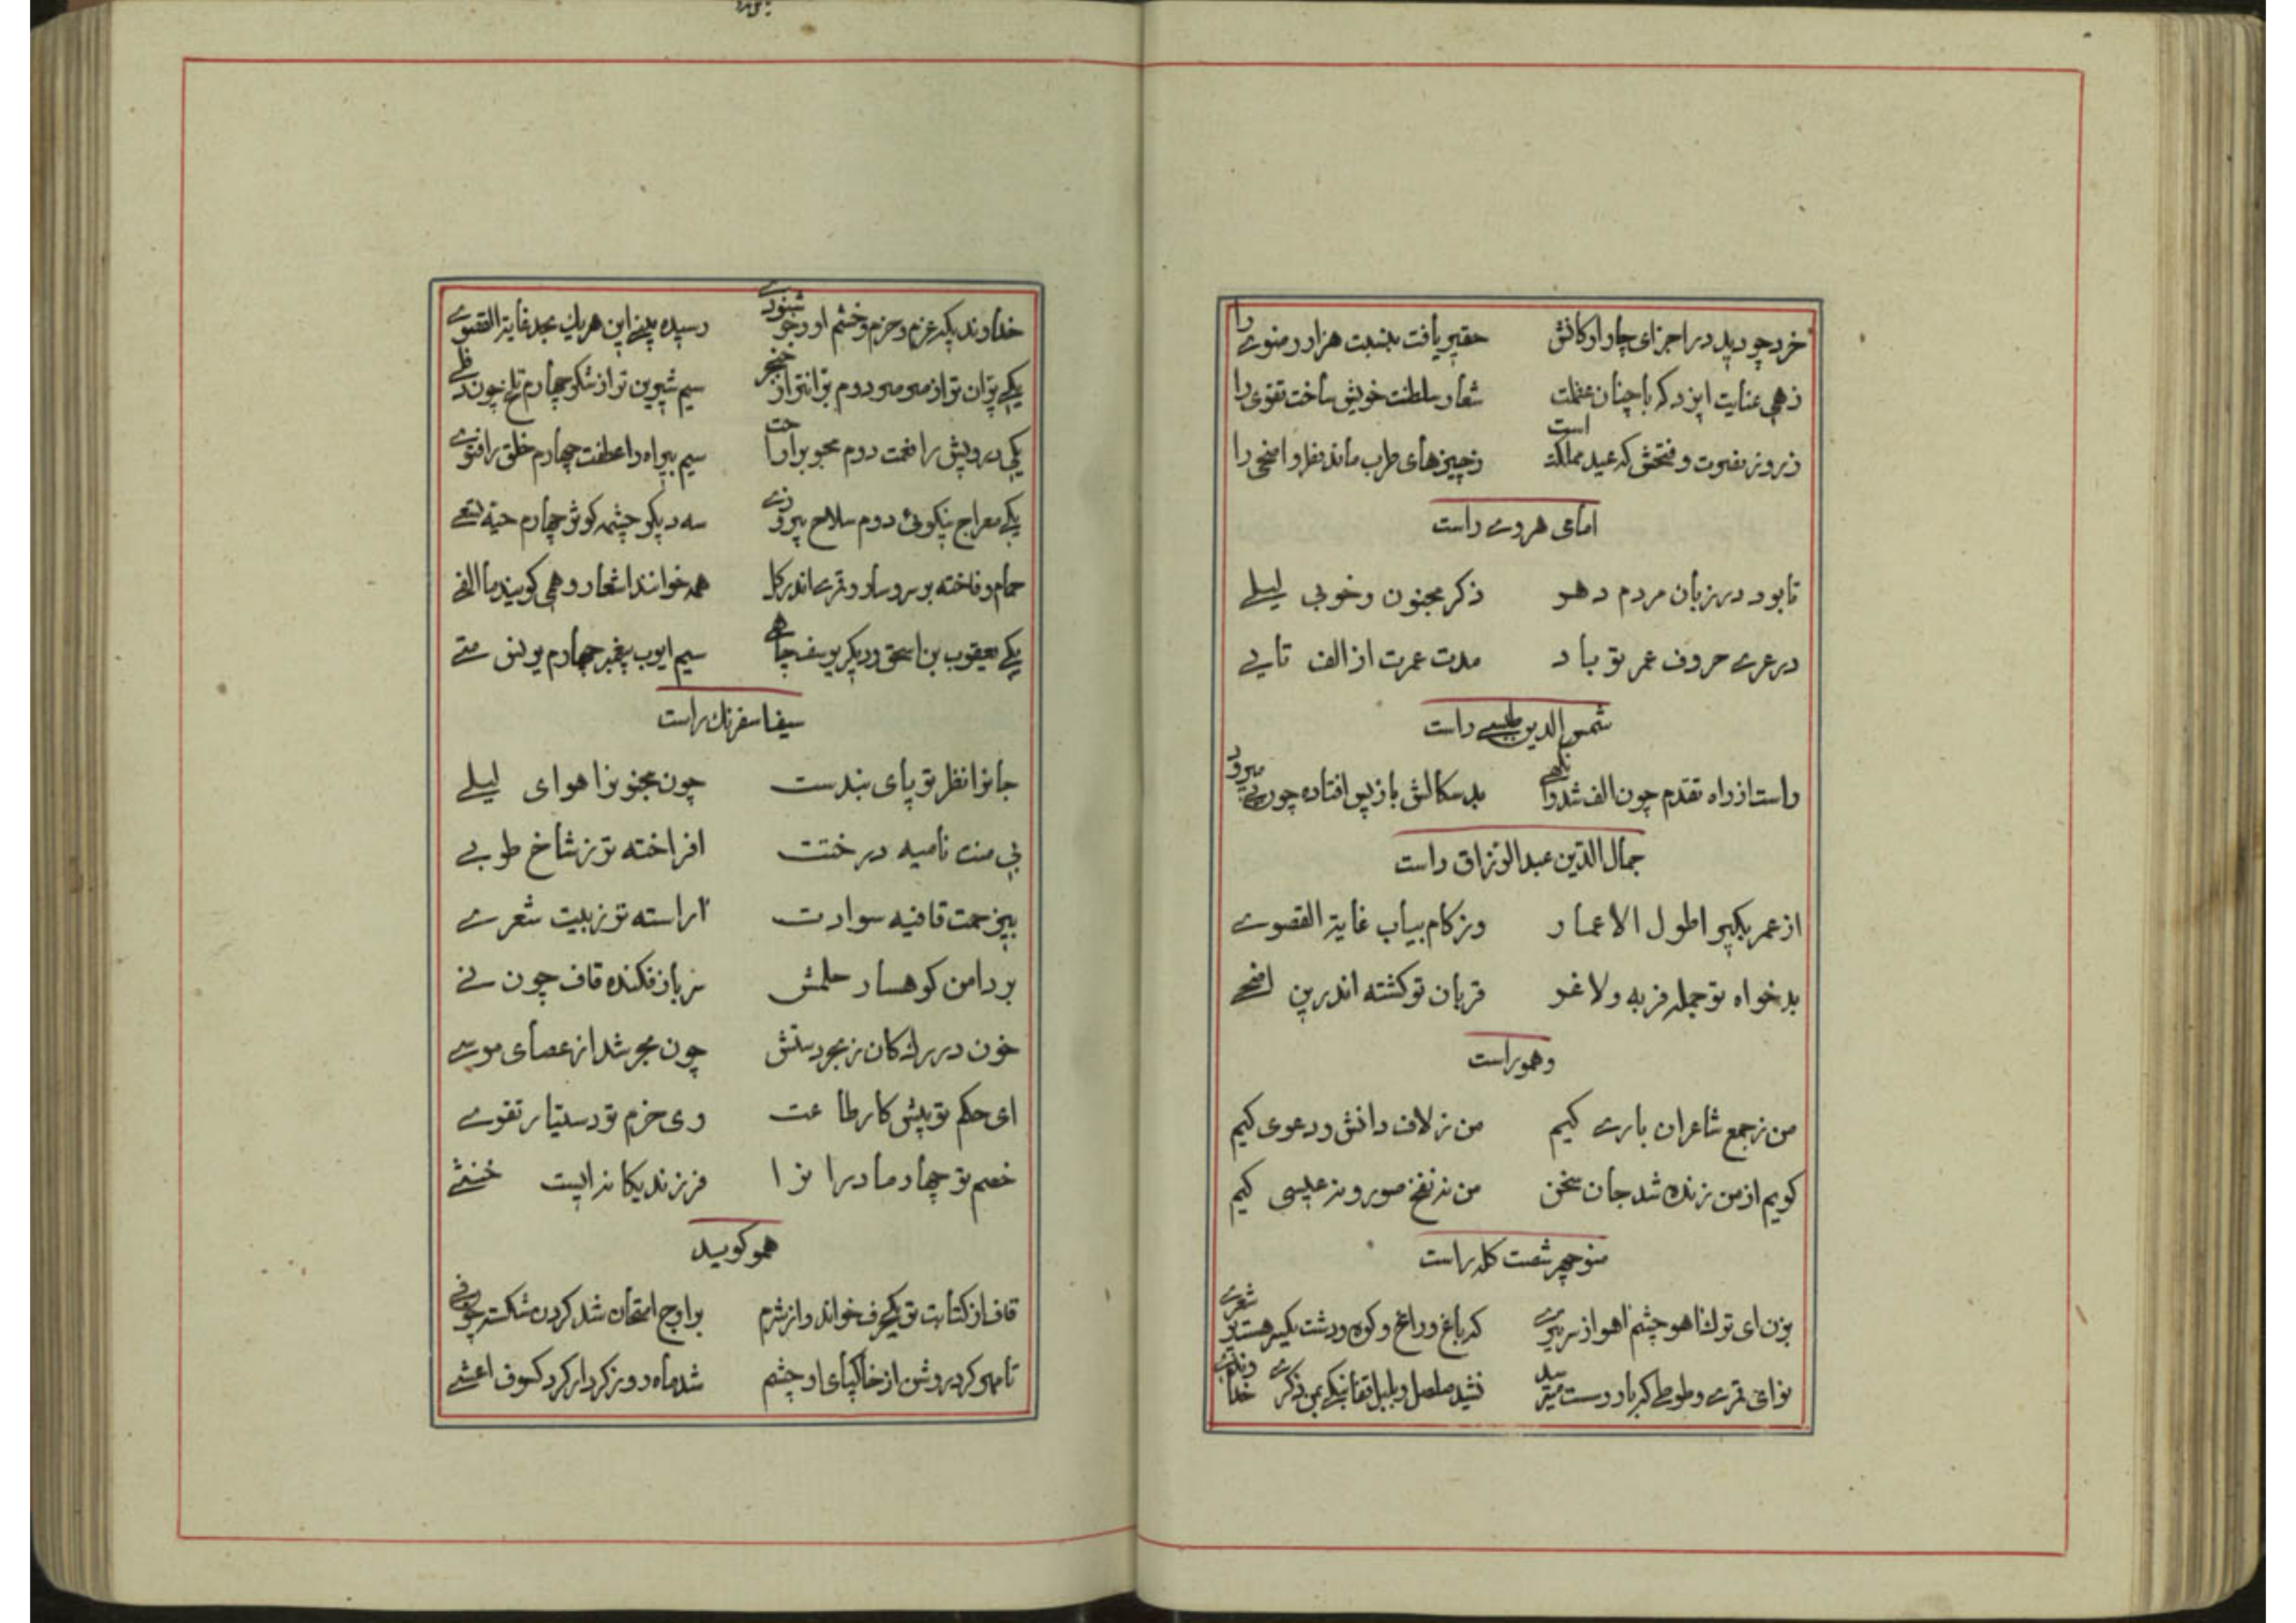 خرد چو دید در اجزای چار ارکانش حقیر یافت بنسبت هزار رضوی را
زهی عنایت ایزد که با چنان عظمت شعار سلطنت خویش ساخت تقوی را
ز روز نصرت و فتحش که عید مملکت است ز چیزهای طرب ماند فطر و اضحی را
امامی هروی راست
تا بود در زبان مردم دهر ذکر مجنون و خوبی لیلی
در عری حروف عمر تو باد مدت عمرت از الف تا یی
شمس الدین طبسی راست
راست از راه تقدم چون الف شد بدسکالش باز پس افتاده چون یی میرود
جمال الدین عبدالرزاق راست
از عمر بگیر اطول الاعمار وز کام بیاب غایة القصوی
بدخواه تو جمله فربه و لاغر قربان تو کشته اندرین اضحی
و هموراست
من ز جمع شاعران باری کیم من ز لاف دانش و دعوی کیم
گویم از من زنده شد جان سخن من ز نفخ صور و ز عیسی کیم
منوچهر شصت کله راست
بزن ای ترک آهو چشم آهو از سر تیری که باغ و راغ و کوه و دشت یکسر هست پر شعری
نوای قمری و طوطی که بارد است نشید صلصل و بلبل قفا نبک من ذکری
خداوندیکه عزم و حزم و خشم او و خوشنودی رسیده بینی این هر یک بحد غایة القصوی
یکی بران تر از صرصر دوم برانتر از خنجر سیم شیرین تر از شکر چهارم تلخ چون دفلی
یکی درویش را نعمت دوم محبوب را راحت سیم بیراه را عطفت چهارم خلق را فتوی
یکی معراج نیکوئی دوم سلاح پیروزی سه دیگر چشمه کوثر چهارم حیة تسعی
حمام و فاخته بر سرو سار و قمری اندر گل همه خوانند اشعار و همی گویند ما الفی
یکی یعقوب بن اسحق و دیگر یوسف چاهی سیم ایوب پیغمبر چهارم یونس متی
سیف اسفرنک راست
جانرا نظر تو پای بندست چون مجنونرا هوای لیلی
بی منت نامیه درختت افراخته تر ز شاخ طوبی
بیزحمت قافیه سوادت آراسته تر ز بیت شعری
بر دامن کوهسار حلمش سر باز فکنده قاف چون نی
خون در رک کان ز بحر دستش چون بحر شد از عصای موسی
ای حکم تو پیش کار طاعت وی حزم تو دستیار تقوی
خصم تو چهار مادر انرا فرزند یکانه ایست خنثی
همو گوید
قاف از کتابت تو یکحرف خواند و از شرم بر اوج امتحان شد گردن شکسته چون فی
تا مهر کرد روشن از خاکپای او چشم شد ماه روز کردار کرد کسوف اعشی